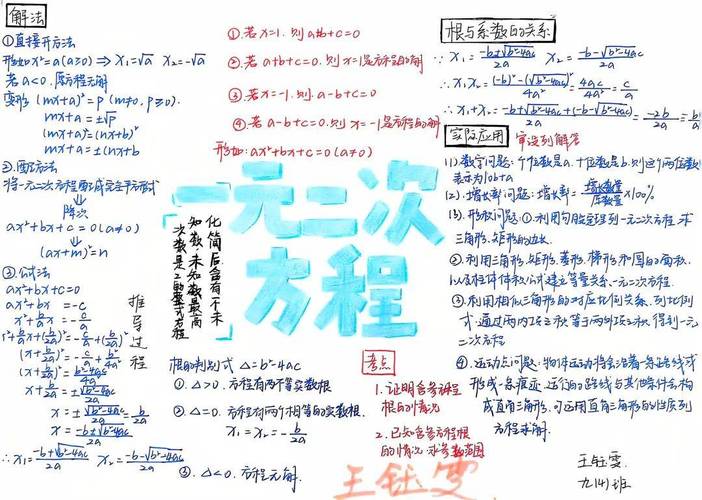 解法
①直接开方法
形如x²=a(a≥0) ⇒ x₁=√a x₂=-√a
若a<0,原方程无解
变形: (mx+a)²=p (m≠0, p≥0).
mx+a=±√p
(mx+a)²=(nx+b)²
mx+a=±(nx+b
②.配方法
将一元二次方程配成完全平方式
降次
ax²+bx+c=0(a≠0)
(ax+m)²=n
③.公式法
ax²+bx+c=0
ax²+bx=-c
x²+b/a x=-c/a
x²+b/a x+(b/2a)²=-c/a+(b/2a)²
(x+b/2a)²=-c/a+b²/4a²
(x+b/2a)²=
x+b/2a=±√b²-4ac/2a
x=±√b²-4ac/2a-b/2a
x=-b±√b²-4ac/2a
∴x₁=-b+√b²-4ac/2a x₂=-b-√b²-4ac/2a
推导过程
①.若x=1.则a+b+c=0
②.若a+b+c=0.则x=1是方程的解
③.若x=-1.则a-b+c=0
④.若a-b+c=0.则x=-1是方程的解
形如:ax²+bx+c=0(a≠0)
一元二次
方程
化简后含有一个未
知数,未知数最高
次数是2的整式方程
根的判别式 Δ=b²-4ac
①.Δ>0.方程有两个不等实数根
②.Δ=0.方程有两个相等的实数根.
x₁=x₂=-b/2a
③.Δ<0.方程无解.
考点
1.证明含参方程
根的情况
2.已知含参方程根
的情况求参数范围
王钰雯
根与系数的关系
∵x₁=-b+√b²-4ac/2a x₂=-b-√b²-4ac/2a
∴x₁x₂=(-b)²-(√b²-4ac)²/4a²=4ac/4a²=c/a
∴x₁+x₂=-b+√b²-4ac+(-b-√b²-4ac)/2a=-2b/2a=-b/a
实际应用 审设列解答
(1).数字问题:个位数是a.十位数是b.则这个两位数
表示为10b+a
(2).增长率问题:增长率=增长数量/原数量×100%
(3).形积问题:①.利用勾股定理列一元二次方程,求
三角形,矩形的边长.
②.利用三角形,矩形,菱形,梯形和圆的面积.
以及柱体体积公式建立等量关系.一元二次方程.
③.利用相似三角形的对应比例关系.列比例
式.通过两内项之积等于两外项之积.得到一元
二次方程
④.运动点问题:物体运动将会沿着一条路线或
形成一条痕迹.运行的路线与其他条件会构
成直角三角形.可运用直角三角形的性质列
方程求解.
王钰雯
九(4)班